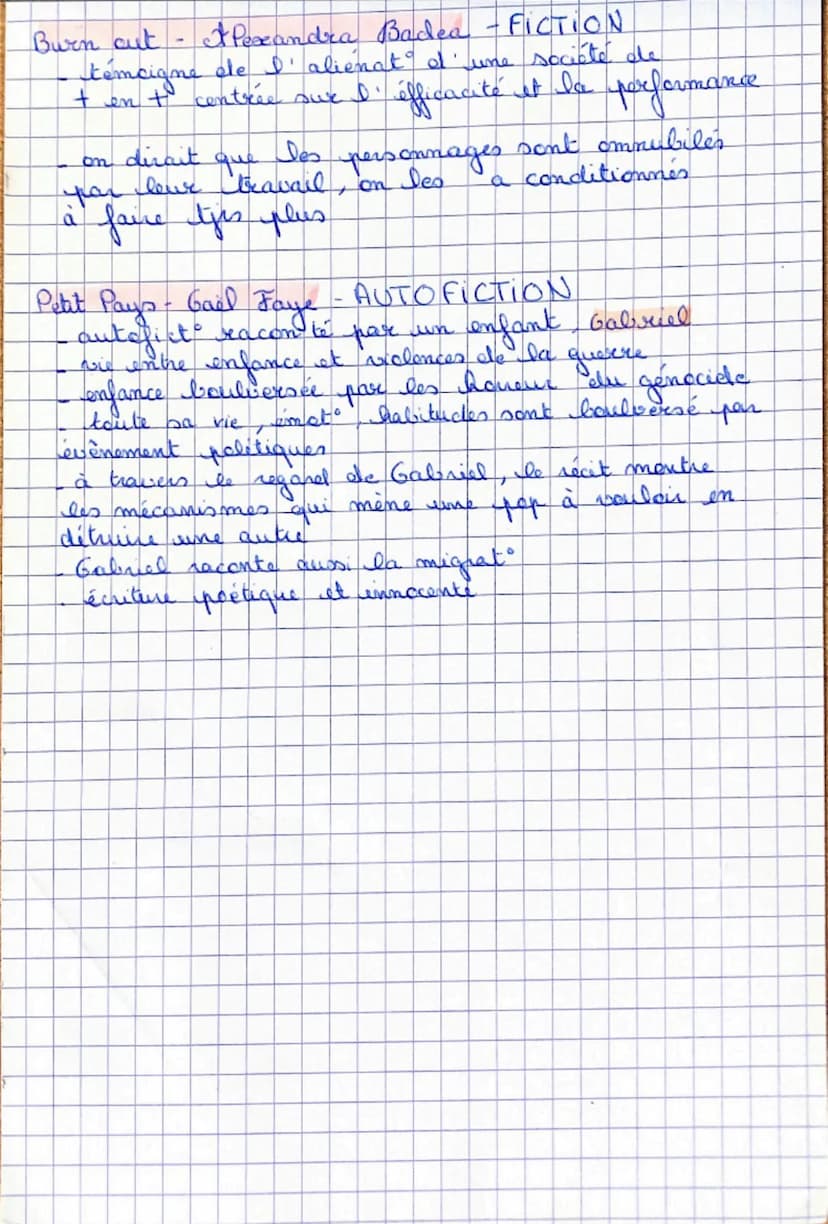 Burn out - Alexandra Badea - FiCTiON
- témoigne de l'aliénat° d'une société de
+ en + centrée sur l'éfficacité et la performance
- on dirait que les personnages sont omnubilés
par leur travail, on les a conditionnés
à faire tjrs plus
Petit Pays - Gaël Faye - AUTOFiCTiON
- autofict° raconté par un enfant, Gabriel
- vie entre enfance et violences de la guerre
- enfance boulversée par les horreur du génocide
- toute sa vie, émot°, habitudes sont boulversé par
évènement politiques
- à travers le regard de Gabriel, le récit montre
les mécanismes qui mène une pop à vouloir en
détruire une autre
- Gabriel raconte aussi la migrat°
- écriture poétique et innocente